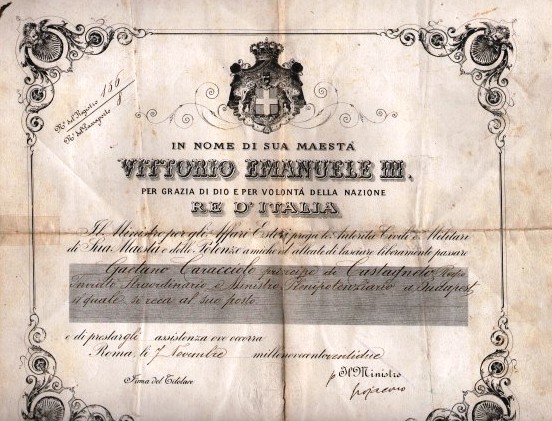 N.º del Registro 136
N.º del Passaporto 8
IN NOME DI SUA MAESTÁ
VITTORIO EMANUELE III.
PER GRAZIA DI DIO E PER VOLONTÁ DELLA NAZIONE
RE D'ITALIA
Il Ministro per gli Affari Esteri prega le Autorità Civili e Militari
di Sua Maestà e delle Potenze amiche ed alleate di lasciar liberamente passare
Gaetano Caracciolo principe di Castagneto Regio
Inviato Straordinario e Ministro Plenipotenziario a Budapest,
il quale si reca al suo posto
e di prestargli assistenza ove occorra
Roma, li 7 Novembre millenovecento
Firma del Titolare
p Il Ministro